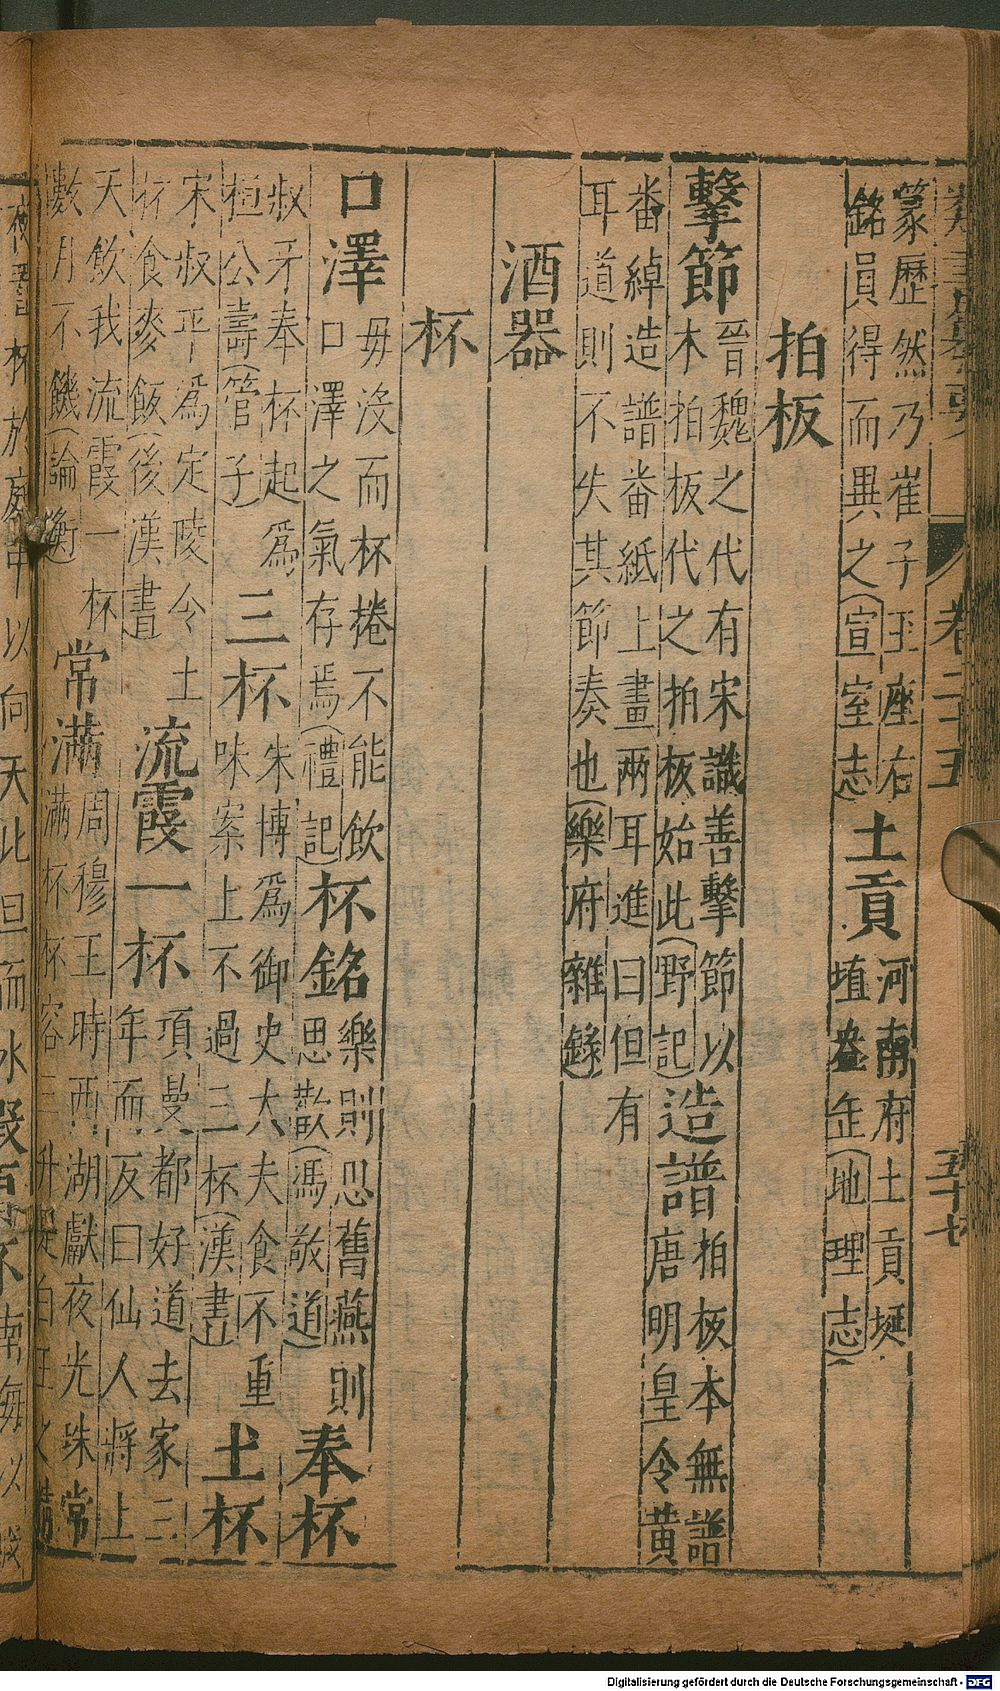 卷二十五 五十七
篆歷然乃崔子玉座右
銘員得而異之(宣室志)
土貢
河南府土貢埏
埴盎缶(地理志)
拍板
擊節
晉魏之代有宋識善擊節以
木拍板代之拍板始此(野記)
造譜
拍板本無譜
唐明皇令黃
番綽造譜番紙上畫兩耳進曰但有
耳道則不失其節奏也(樂府雜錄)
酒器
杯
口澤
毋沒而杯棬不能飲
口澤之氣存焉(禮記)
杯銘
樂則忍舊燕則
思歡(馮敬道)
奉杯
叔牙奉杯起為
桓公壽(管子)
三杯
朱博為御史大夫食不重
味案上不過三杯(漢書)
土杯
宋叔平為定陵令土
杯食麥飯(後漢書)
流霞一杯
項曼都好道去家三
年而反曰仙人將上
天飲我流霞一杯
數月不饑(論衡)
常滿
周穆王時西湖獻夜光珠常
滿杯杯容三升是白玉之精
夜 杯於庭中以向天比旦而水
南海以
Digitalisierung gefördert durch die Deutsche Forschungsgemeinschaft - DFG